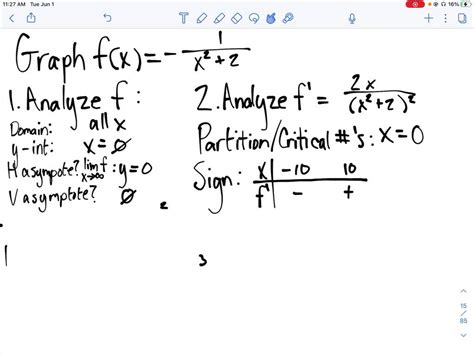 11:27 AM Tue Jun 1
16%
Graph f(x) = - 1/(x² + 2)
1. Analyze f :
Domain: all x
y-int: x = 0
H asympote? lim x→∞ f : y = 0
V asymptote? ∅
2. Analyze f' = 2x/(x² + 2)²
Partition/Critical #'s: x = 0
Sign: x | -10 10
f' | - +
2
3
15
/
85